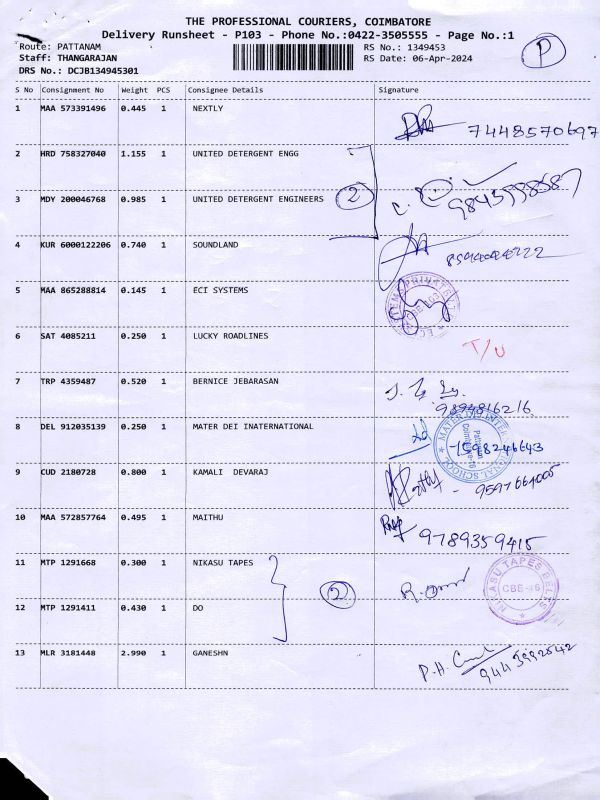 THE PROFESSIONAL COURIERS, COIMBATORE
Delivery Runsheet - P103 - Phone No.:0422-3505555 - Page No.:1
Route: PATTANAM RS No.: 1349453
P
Staff: THANGARAJAN RS Date: 06-Apr-2024
DRS No.: DCJB134945301
S No Consignment No Weight PCS Consignee Details Signature
1 MAA 573391496 0.445 1 NEXTLY
7448570697
2 HRD 758327040 1.155 1 UNITED DETERGENT ENGG
3 MDY 200046768 0.985 1 UNITED DETERGENT ENGINEERS 2
4 KUR 6000122206 0.740 1 SOUNDLAND
5 MAA 865288814 0.145 1 ECI SYSTEMS
6 SAT 4085211 0.250 1 LUCKY ROADLINES
T/U
7 TRP 4359487 0.520 1 BERNICE JEBARASAN
9894816216
8 DEL 912035139 0.250 1 MATER DEI INATERNATIONAL
7598246643
9 CUD 2180728 0.800 1 KAMALI DEVARAJ
10 MAA 572857764 0.495 1 MAITHU
9789359415
11 MTP 1291668 0.300 1 NIKASU TAPES
NIKASU TAPES BELTS
2
12 MTP 1291411 0.430 1 DO
13 MLR 3181448 2.990 1 GANESHN